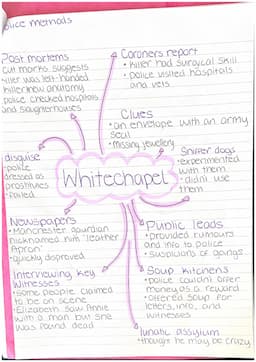 police methods
Post mortems
cut marks suggests
killer was left-handed
killer knew anatomy
police checked hospitals
and slaughterhouses
Coroners report
• killer had surgical skill
• police visited hospitals
and vets
Clues
• an envelope with an army
seal
• missing jewellery
Sniffer dogs
• experimented
with them
• didnt use
them
disguise
• police
dressed as
prostitutes
• failed
Whitechapel
Newspapers
• Manchester gaurdian
nicknamed him 'leather
Apron'
• quickly disproved
Public leads
• provided rumours
and info to police
• suspicions of gangs
Interviewing key
Witnesses
• some people claimed
to be on scene
• Elizabeth saw Annie
with a man but she
was found dead
Soup kitchens
• police couldnt offer
money as a reward
• offered soup for
letters, info, and
witnesses
lunatic assylum
• though he may be crazy